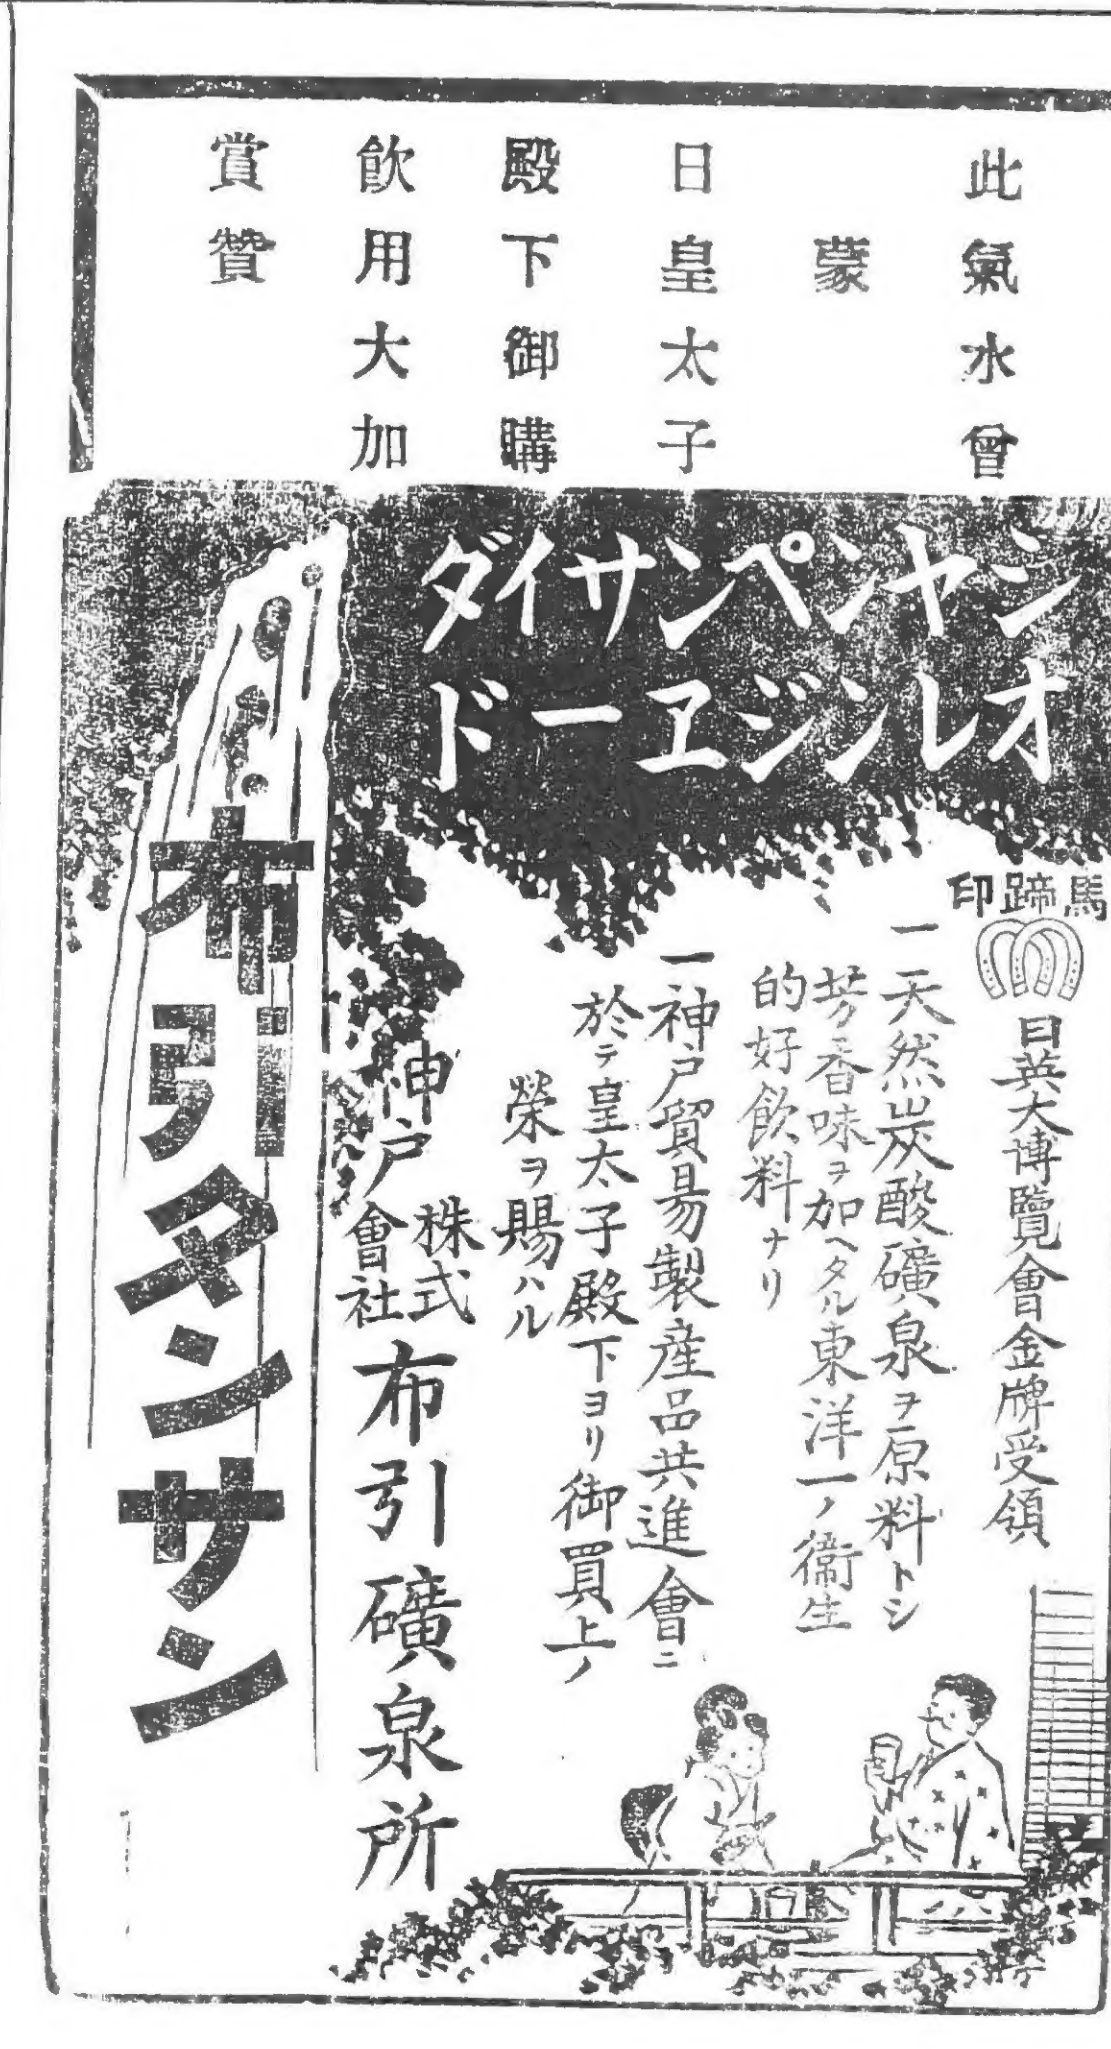 此氣水曾
蒙
日皇太子
殿下御購
飲用大加
賞贊
シャンペンサイダ
オレンジヱード
馬蹄印
日英大博覽會金牌受領
一天然炭酸礦泉ヲ原料トシ
芳香味ヲ加ヘタル東洋一ノ衞生
的好飲料ナリ
一神戸貿易製産品共進會ニ
於テ皇太子殿下ヨリ御買上ノ
榮ヲ賜ハル
神戸
株式
會社
布引礦泉所
布引タンサン